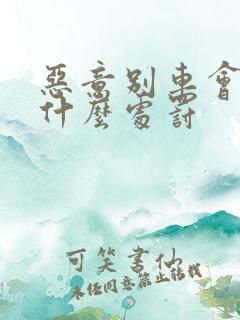 惡意別車會
什麼處討
可笑書仙
未经同意禁止转载